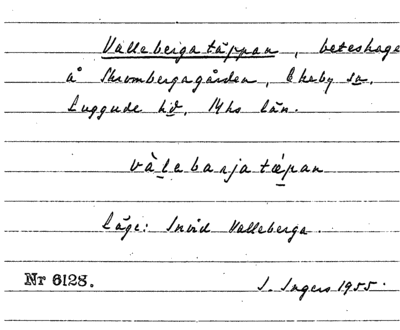 Valleberga täppan, beteshage
å Skrombergagården, Ekeby sn.
Luggude hd, Mhs län.
vàlebarja tæpan
Läge: Invid Valleberga.
Nr 6128. I. Ingers 1955.